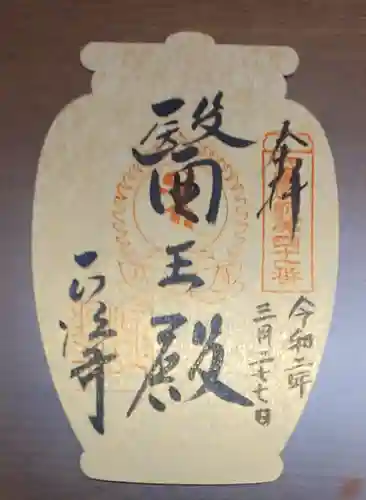 奉拝
令和二年
三月二七日
醫王殿
正法寺